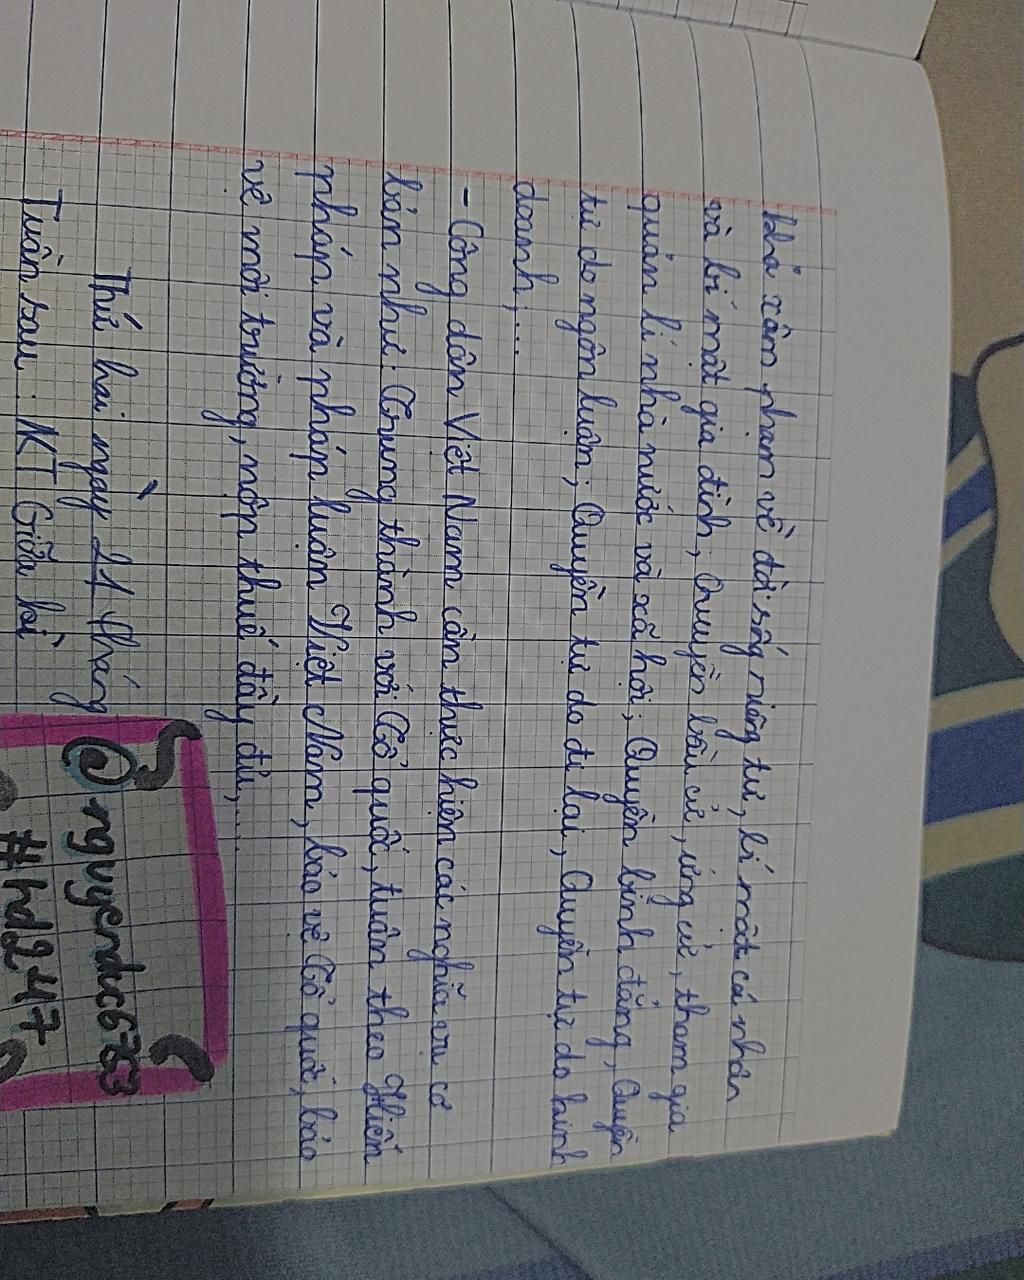 khả xâm phạm về đời sống riêng tư, bí mật cá nhân
và bí mật gia đình; Quyền bầu cử, ứng cử, tham gia
quản lí nhà nước và xã hội; Quyền bình đẳng, Quyền
tự do ngôn luận; Quyền tự do đi lại, Quyền tự do kinh
doanh,...
- Công dân Việt Nam cần thực hiện các nghĩa vụ cơ
bản như: Trung thành với Tổ quốc, tuân theo Hiến
pháp và pháp luận Việt Nam, bảo vệ Tổ quốc, bảo
vệ môi trường, nộp thuế đầy đủ,...
Thứ hai ngày 21 tháng
Tuần sau: KT Giữa kì
@nguyenduc6763
#hd247